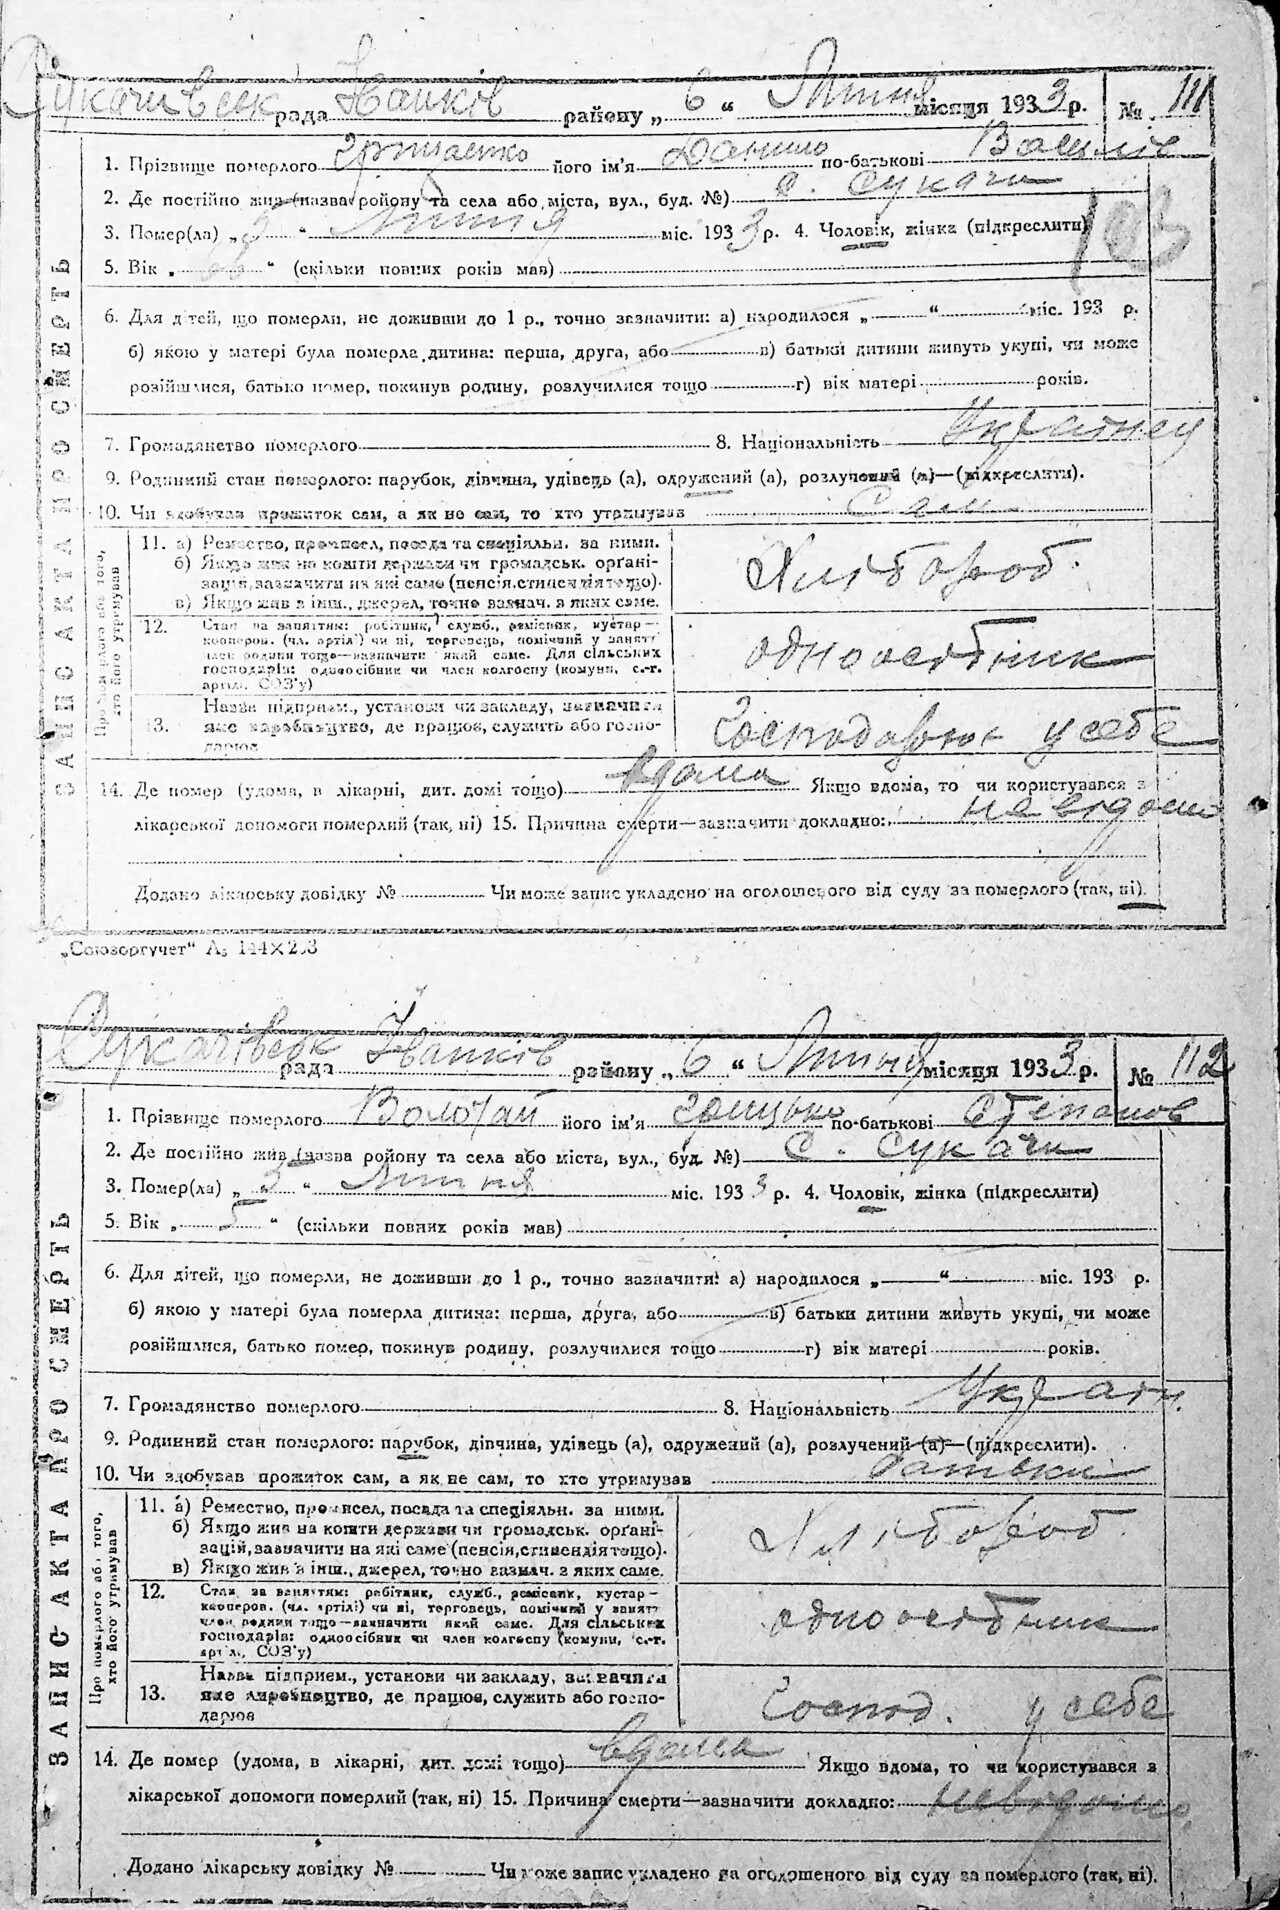 Сукачівськ рада Іванків району „ 6 “ Липня місяця 1933 р. № 111
1. Прізвище померлого Грищенко його ім'я Данило по-батькові Василів
2. Де постійно жив (назва району та села або міста, вул., буд. №) с. Сукачи
3. Помер(ла) „ 5 “ Липня міс. 1933 р. 4. Чоловік, жінка (підкреслити)
5. Вік „ “ (скільки повних років мав)
6. Для дітей, що померли, не доживши до 1 р., точно зазначити: а) народилося „ “ міс. 193 р.
б) якою у матері була померла дитина: перша, друга, або в) батьки дитини живуть укупі, чи може
розійшлися, батько помер, покинув родину, розлучилися тощо г) вік матері років.
7. Громадянство померлого 8. Національність Українец
9. Родинний стан померлого: парубок, дівчина, удівець (а), одружений (а), розлучений (а)—(підкреслити).
10. Чи здобував прожиток сам, а як не сам, то хто утримував Сам
ЗАПИС АКТА ПРО СМЕРТЬ
Про померлого або того, хто його утримував
11. а) Ремество, промисел, посада та спеціяльн. за ними.
б) Якщо жив на кошти держави чи громадськ. орґані-
зацій, зазначити на які саме (пенсія, стипендія тощо).
в) Якщо жив в інш., джерел, точно зазнач. з яких саме.
Хлібороб.
12. Стан за заняттям: робітник, служб., ремісник, кустар—
кооперов. (чл. артілі) чи ні, торговець, помічний у занятт
член родини тощо—зазначити який саме. Для сільських
господарів: одноосібник чи член колгоспу (комуни, с.-г.
артіл. СОЗ'у)
одноосібник
13. Назва підприєм., установи чи закладу, зазначити
яке виробництво, де працює, служить або госпо-
дарює
Господарює у себе
14. Де помер (удома, в лікарні, дит. домі тощо) вдома Якщо вдома, то чи користувався з
лікарської допомоги померлий (так, ні) 15. Причина смерти—зазначити докладно: невідомо
Додано лікарську довідку № Чи може запис укладено на оголошеного від суду за померлого (так, ні).
„Союзоргучет“ А5 144×203
Сукачівськ рада Іванків району „ 6 “ Липня місяця 1933 р. № 112
1. Прізвище померлого його ім'я Грицько по-батькові Степанов
2. Де постійно жив (назва району та села або міста, вул., буд. №) с. Сукачи
3. Помер(ла) „ 3 “ Липня міс. 1933 р. 4. Чоловік, жінка (підкреслити)
5. Вік „ 5 “ (скільки повних років мав)
6. Для дітей, що померли, не доживши до 1 р., точно зазначити: а) народилося „ “ міс. 193 р.
б) якою у матері була померла дитина: перша, друга, або в) батьки дитини живуть укупі, чи може
розійшлися, батько помер, покинув родину, розлучилися тощо г) вік матері років.
7. Громадянство померлого 8. Національність Україн.
9. Родинний стан померлого: парубок, дівчина, удівець (а), одружений (а), розлучений (а)—(підкреслити).
10. Чи здобував прожиток сам, а як не сам, то хто утримував батьки
ЗАПИС АКТА ПРО СМЕРТЬ
Про померлого або того, хто його утримував
11. а) Ремество, промисел, посада та спеціяльн. за ними.
б) Якщо жив на кошти держави чи громадськ. орґані-
зацій, зазначити на які саме (пенсія, стипендія тощо).
в) Якщо жив в інш., джерел, точно зазнач. з яких саме.
Хлібороб
12. Стан за заняттям: робітник, служб., ремісник, кустар—
кооперов. (чл. артілі) чи ні, торговець, помічний у занятт
член родини тощо—зазначити який саме. Для сільських
господарів: одноосібник чи член колгоспу (комуни, с.-г.
артіл., СОЗ'у)
одноосібник
13. Назва підприєм., установи чи закладу, зазначити
яке виробництво, де працює, служить або госпо-
дарює
Господ. у себе
14. Де помер (удома, в лікарні, дит. домі тощо) вдома Якщо вдома, то чи користувався з
лікарської допомоги померлий (так, ні) 15. Причина смерти—зазначити докладно: невідомо
Додано лікарську довідку № Чи може запис укладено на оголошеного від суду за померлого (так, ні).